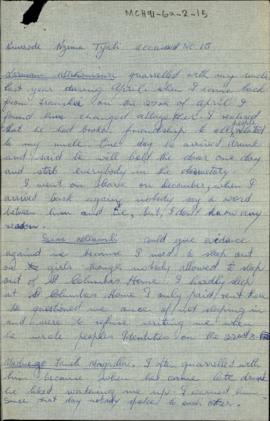 MCH91-6a-2-15
accused No. 15
quarrelled with my uncle
last year during April. when I came back
from Transkei on the 22nd of April I
found him changed altogether. I noticed
that he had broken friendship to all people related
to my uncle. One day he arrived drunk
and said he will bolt the door one day
and stab everybody in the dormitory
I went on leave on December, when I
arrived back again nobody say a word
between him and me, but, I don't know any
reason.
could give evidence
against me because I used to sleep out
at girls though nobody allowed to sleep
out of St Columbas Home. I hardly sleep
at St Columbas Home I only paid rent there
he questioned me once of not sleeping in
and wrote to refuse writing me when
he wrote people's
I often quarrelled with
him because when he comes late drunk
he liked warning me up. I warned him
since that day nobody spoke to each other.